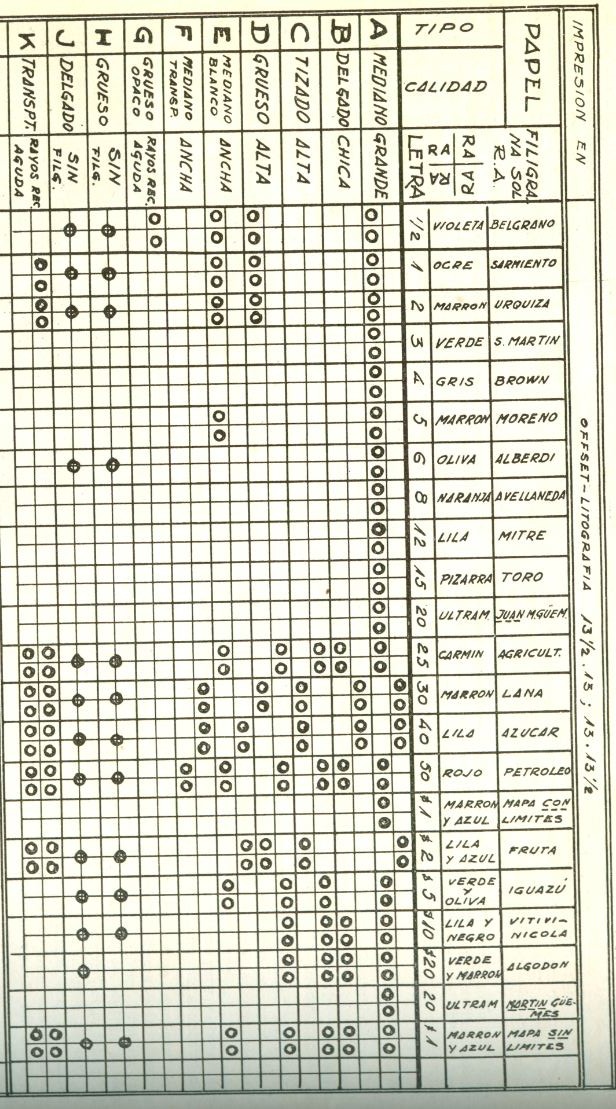 IMPRESION EN OFFSET-LITOGRAFIA 13½.13 ; 13.13½
PAPEL FILIGRANA SOL R.A.
TIPO CALIDAD RA RA RA RA LETRA
A MEDIANO GRANDE
B DELGADO CHICA
C TIZADO ALTA
D GRUESO ALTA
E MEDIANO BLANCO ANCHA
F MEDIANO TRANSP. ANCHA
G GRUESO OPACO RAYOS REC. AGUDA
H GRUESO SIN FILG.
J DELGADO SIN FILG.
K TRANSPT. RAYOS REC. AGUDA
½ VIOLETA BELGRANO
1 OCRE SARMIENTO
2 MARRON URQUIZA
3 VERDE S. MARTIN
4 GRIS BROWN
5 MARRON MORENO
6 OLIVA ALBERDI
8 NARANJA AVELLANEDA
12 LILA MITRE
15 PIZARRA TORO
20 ULTRAM. JUAN M.GÜEM.
25 CARMIN AGRICULT.
30 MARRON LANA
40 LILA AZUCAR
50 ROJO PETROLEO
$1 MARRON Y AZUL MAPA CON LIMITES
$2 LILA Y AZUL FRUTA
$5 VERDE Y OLIVA IGUAZÚ
$10 LILA Y NEGRO VITIVINICOLA
$20 VERDE Y MARRON ALGODON
20 ULTRAM MARTIN GÜEMES
$1 MARRON Y AZUL MAPA SIN LIMITES